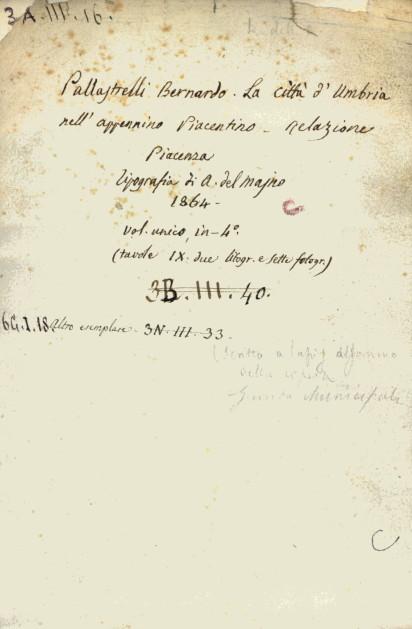 3A.III.16.
Pallastrelli Bernardo. La città d'Umbria
nell'appennino Piacentino - Relazione
Piacenza
Tipografia di A. del Majno
1864 -
vol. unico, in-4°.
(tavole IX. due litogr. e sette fotogr.)
3B.III.40.
6G.I.18. Altro esemplare - 3N-III-33.
(scritto a lapis
della
Giunta Municipale